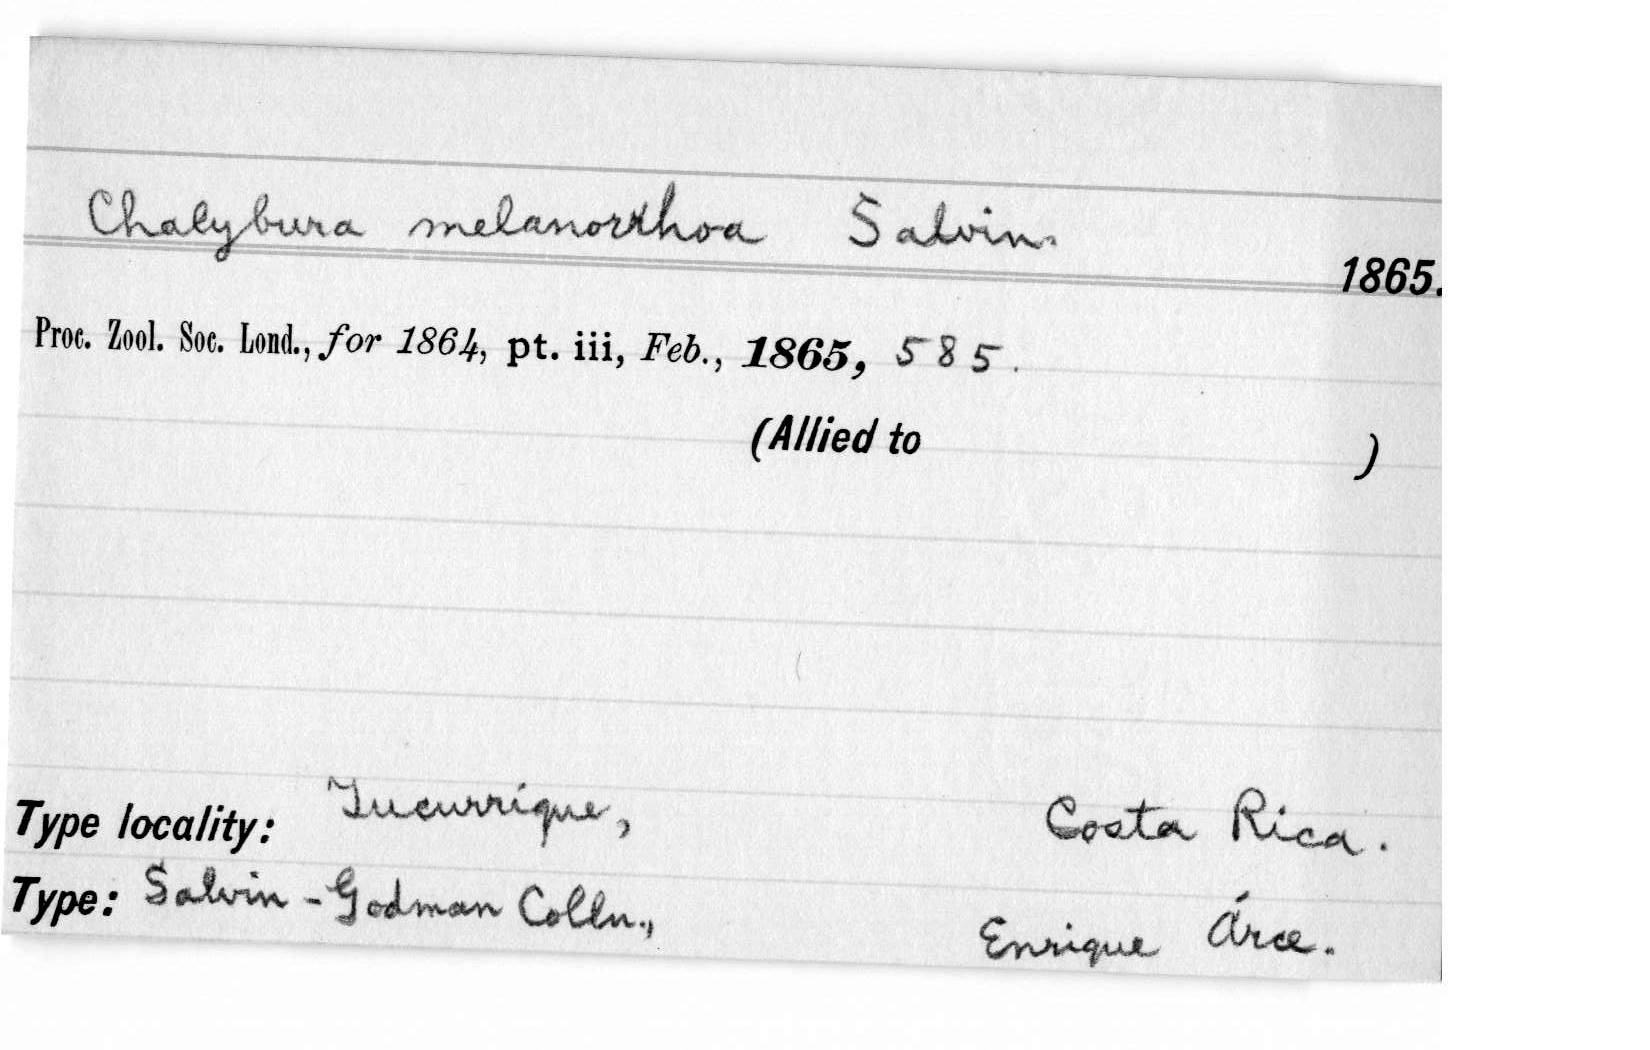 Chalybura melanorrhoa Salvin.
1865.
Proc. Zool. Soc. Lond., for 1864, pt. iii, Feb., 1865, 585.
(Allied to )
Type locality: Tucurrique, Costa Rica.
Type: Salvin-Godman Colln., Enrique Árce.